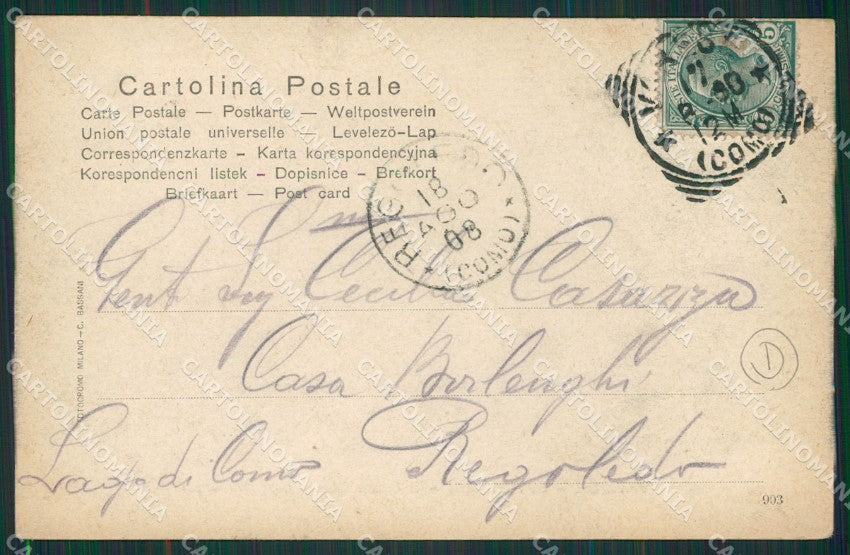 Cartolina Postale
Carte Postale — Postkarte — Weltpostverein
Union postale universelle — Levelező-Lap
Correspondenzkarte - Karta korespondencyjna
Korespondencni listek - Dopisnice - Brefkort
Briefkaart — Post card
REGOLEDO
18
AGO
08
(COMO)
(COMO)
Gent Cecilia Casazza
Casa Borlenghi
Lago di Como Regoledo
FOTOCROMO MILANO - C. BASSANI
D
993
CARTOLINOMANIA